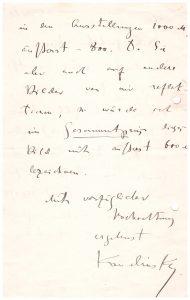 in den Ausstellungen 1000 M,
äußerst – 800. D. Sie
aber auch auf andere
Bilder von mir reflek-
tieren, so würde ich
im Gesammtpreis
Bild mit äußerst 600 M
bezeichnen.
Mit vorzüglicher
Hochachtung
ergebenst
Kandinsky